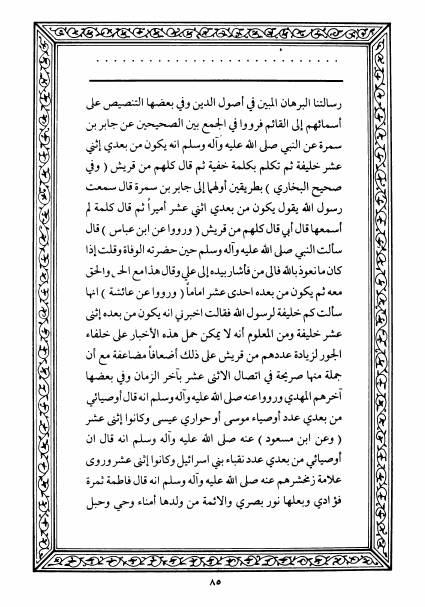 رسالتنا البرهان المبين في أصول الدين وفي بعضها التنصيص على
أسمائهم إلى القائم فرووا في الجمع بين الصحيحين عن جابر بن
سمرة عن النبي صلى الله عليه وآله وسلم انه يكون من بعدي إثني
عشر خليفة ثم تكلم بكلمة خفية ثم قال كلهم من قريش ( وفي
صحيح البخاري ) بطريقين أولهما إلى جابر بن سمرة قال سمعت
رسول الله يقول يكون من بعدي اثني عشر أميراً ثم قال كلمة لم
أسمعها قال أبي قال كلهم من قريش ( ورووا عن ابن عباس ) قال
سألت النبي صلى الله عليه وآله وسلم حين حضرته الوفاة وقلت إذا
كان ما نعوذ بالله فالى من فأشار بيده إلى علي وقال هذا مع الحق والحق
معه ثم يكون من بعده احدى عشر اماماً ( ورووا عن عائشة ) انها
سألت كم خليفة لرسول الله فقالت اخبرني انه يكون من بعده إثنى
عشر خليفة ومن المعلوم أنه لا يمكن حمل هذه الأخبار على خلفاء
الجور لزيادة عددهم من قريش على ذلك أضعافاً مضاعفة مع أن
جملة منها صريحة في اتصال الاثنى عشر بآخر الزمان وفي بعضها
آخرهم المهدي ورووا عنه صلى الله عليه وآله وسلم انه قال أوصيائي
من بعدي عدد أوصياء موسى أو حواري عيسى وكانوا إثنى عشر
( وعن ابن مسعود ) عنه صلى الله عليه وآله وسلم انه قال ان
أوصيائي من بعدي عدد نقباء بني اسرائيل وكانوا إثنى عشر وروى
علامة زمخشرهم عنه صلى الله عليه وآله وسلم انه قال فاطمة ثمرة
فؤادي وبعلها نور بصري والائمة من ولدها أمناء وحي وحبل
٨٥